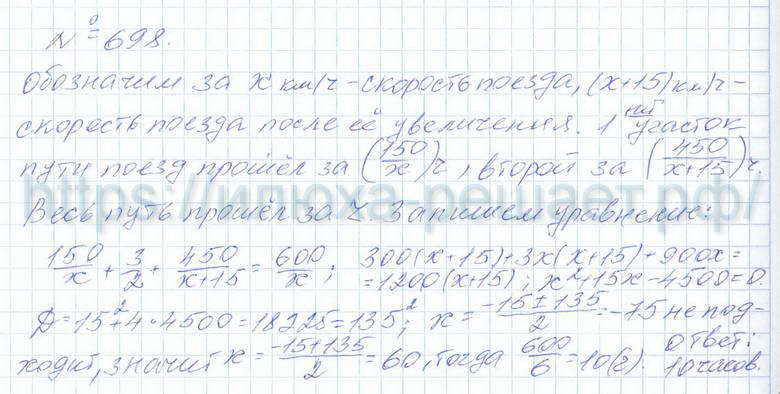 №698.
Обозначим за x км/ч - скорость поезда, (x+15) км/ч -
скорость поезда после её увеличения. 1ый участок
пути поезд прошёл за (150/x) ч, второй за (450/(x+15)) ч.
https://илюха-решает.рф/
Весь путь прошёл за Запишем уравнение:
150/x + 3/2 + 450/(x+15) = 600/x; 300(x+15)+3x(x+15)+900x=
=1200(x+15); x²+15x-4500=0.
D=15²+4·4500=18225=135²; x=(-15±135)/2=-75 не под-
ходит, значит x=(-15+135)/2=60, тогда 600/6=10(ч). Ответ:
10 часов.